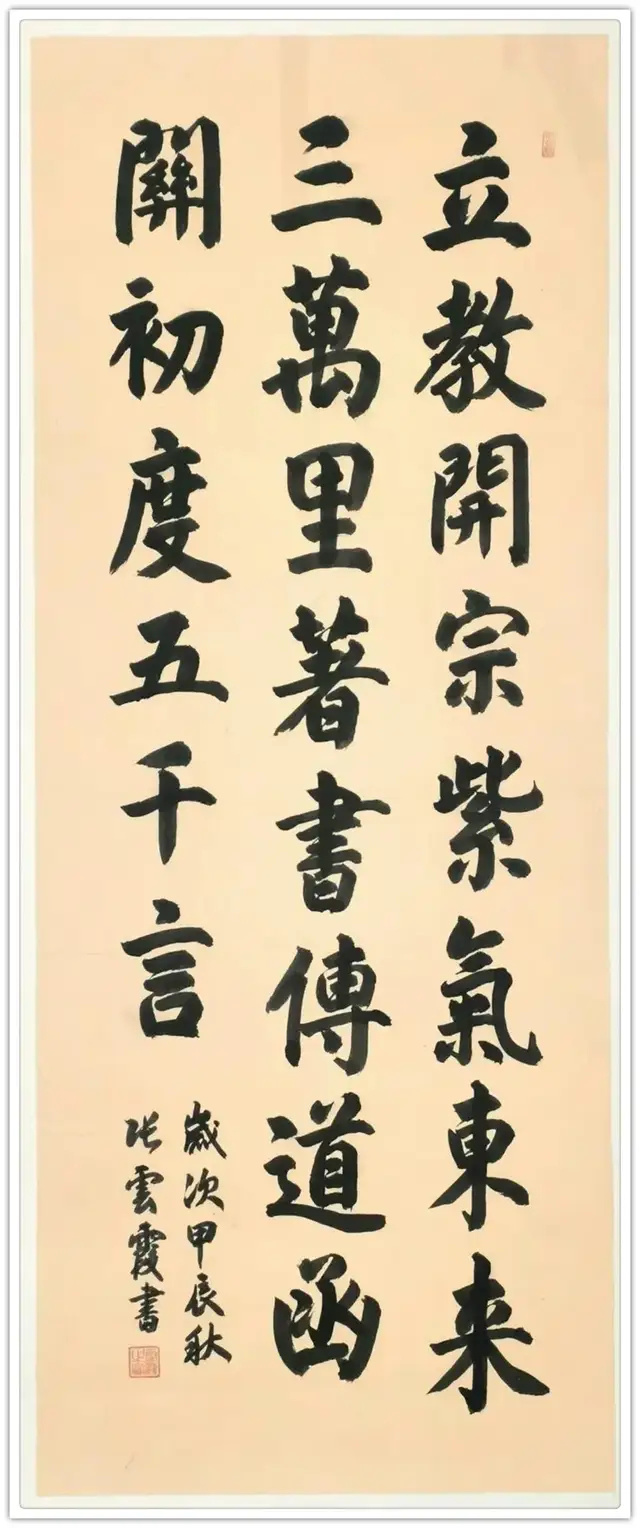 立教開宗紫氣東来
三萬里著書傳道函
關初度五千言
歲次甲辰秋
张雲霞書